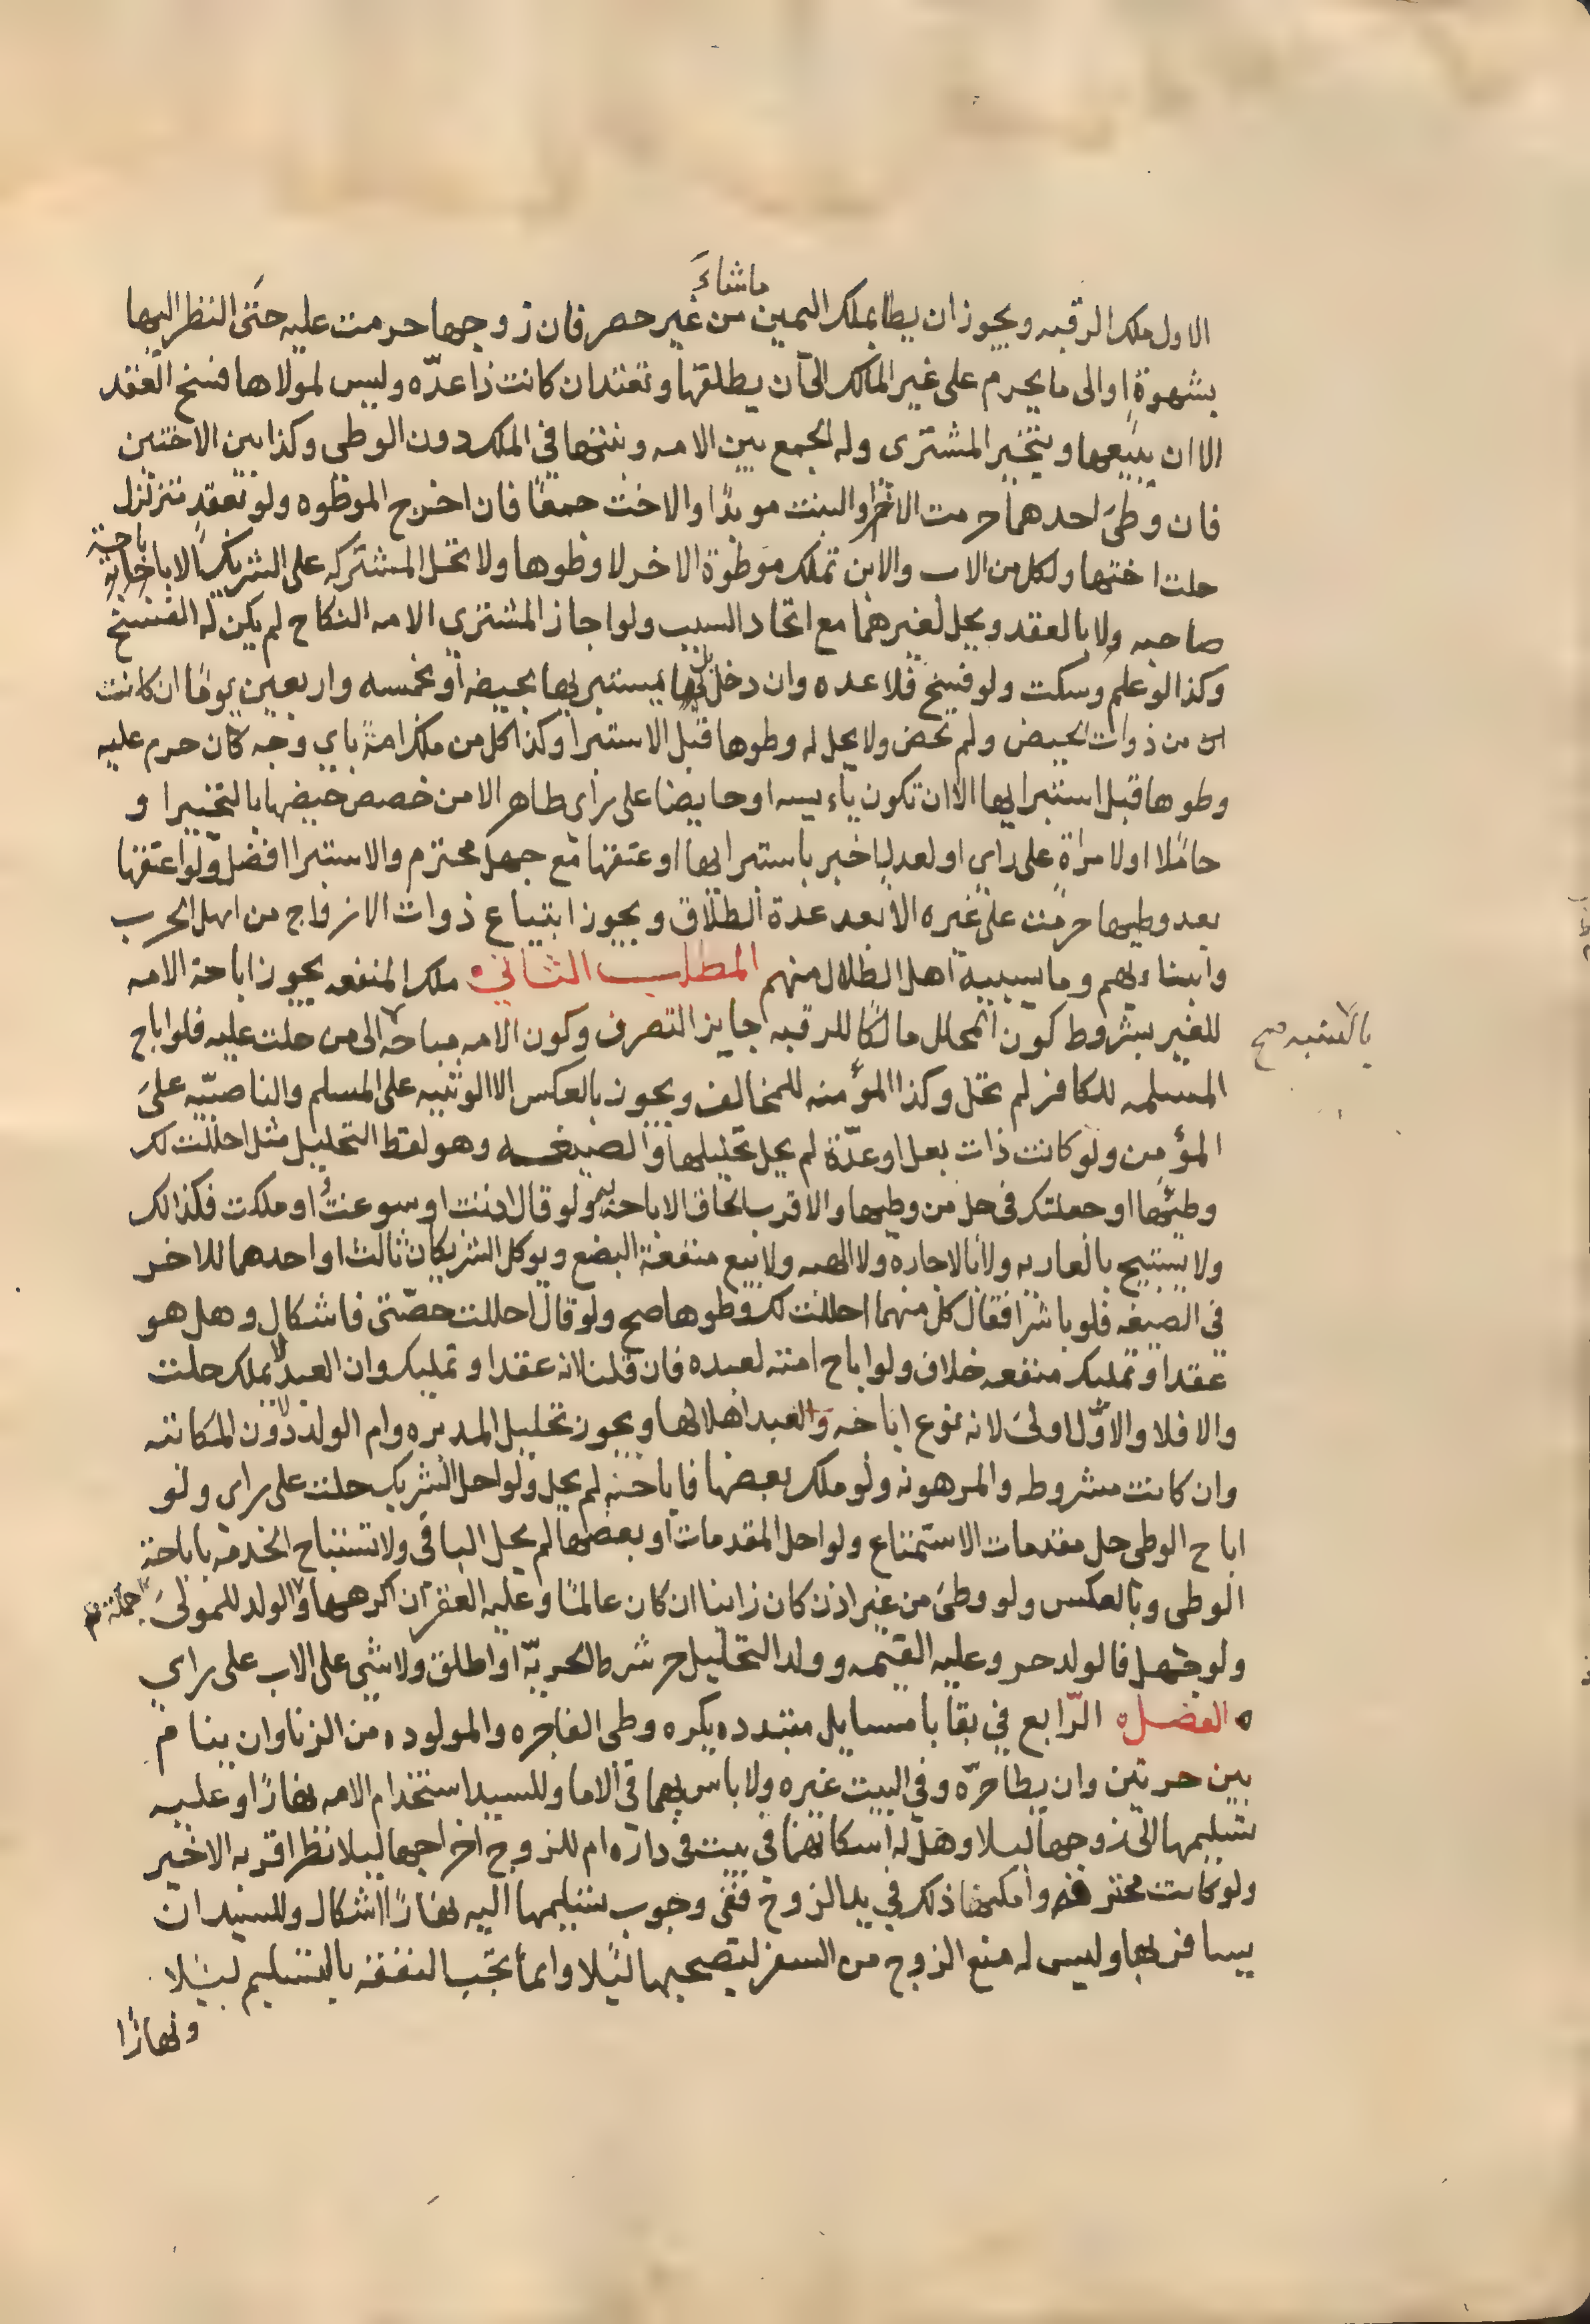 ما شاء
الاول ملك الرقبه ويجوز ان يطا بملك اليمين من غير حصر فان زوجها حرمت عليه حتى النظر اليها
بشهوة او الى ما يحرم على غير المالك الى ان يطلقها وتعتد ان كانت ذا عدّه وليس لمولاها فسخ العقد
الا ان يبيعها ويتخير المشترى وله الجمع بين الامه وبنتها في الملك دون الوطى وكذا بين الاختين
فان وطى احدهما حرمت الام او البنت موبدًا والاخت جمعًا فان اخرج الموطوه ولو بعقد متزلزل
حلت اختها ولكل من الاب والابن تملك موطوة الاخر لا وطوها ولا تحل المشتركه على الشريك الا باباحة
صاحبه ولا بالعقد ويحل لغيرهما مع اتحاد السبب ولو اجاز المشترى الامه النكاح لم يكن له الفسخ
وكذا لو علم وسكت ولو فسخ فلا عده وان دخل بل يستبريها بحيضه او بخمسه واربعين يومًا ان كانت
من ذوات الحيض ولم تحض ولا يحل له وطوها قبل الاستبرا وكذا كل من ملك امة باي وجه كان حرم عليه
وطوها قبل استبرايها الا ان تكون ياءيسه او حايضا على راى طاهر الا من خصص حيضها بالتخير او
حاملا او لامراة على راى او لعدل اخبر باستبرايها او عتقها مع جهل محترم والاستبرا افضل ولو اعتقها
بعد وطيها حرمت على غيره الا بعد عدة الطلاق ويجوز ابتياع ذوات الازواج من اهل الحرب
وابناءيهم وما يسبيه اهل الظلال منهم المطلب الثاني ملك المنفعه يجوز اباحة الامه
للغير بشروط كون المحلل مالكًا للرقبه جايز التصرف وكون الامه مباحه الى من حلت عليه فلو اباح
بالنسبه صح
المسلمه للكافر لم تحل وكذا المؤمنه للمخالف ويجوز بالعكس الا الوثنيه على المسلم والناصبّيه على
المؤمن ولو كانت ذات بعل او عدّة لم يحل تحليلها والصيغه وهو لفظ التحليل مثل احللت لك
وطئها او جعلتك في حل من وطيها والاقرب الحاق الاباحة به ولو قال اذنت او سوغت او ملكت فكذالك
ولا يستبيح بالعاريه ولا بالاجارة ولا الهبه ولا بيع منفعة البضع ويوكل الشريكان ثالثا او احدهما للاخر
في الصيغه فلو باشرا فقال كل منهما احللت لك وطوها صح ولو قال احللت حصّتى فاشكال وهل هو
عقد او تمليك منفعه خلاف ولو اباح امته لعبده فان قلنا انه عقد او تمليك وان العبد لا يملك حلت
والا فلا والاوّل اولى لانه نوع اباحه والعبد اهلا لها ويجوز تحليل المدبره وام الولد دون المكاتبه
وان كانت مشروطه والمرهونه ولو ملك بعضها فاباحته لم يحل ولو احل الشريك حلت على راى ولو
اباح الوطى حل مقدمات الاستمتاع ولو احل المقدمات او بعضها لم يحل الباقى ولا تستباح الخدمة باباحة
الوطى وبالعكس ولو وطى من غير اذن كان زانيا ان كان عالمًا وعليه العقر ان اكرهها والولد للمولى
ولو جهل فالولد حر وعليه القيمه وولد التحليل حر شرط الحريّه او اطلق ولا شى على الاب على راى
الفصل الرّابع في بقايا مسايل متبدده يكره وطى الفاجره والمولوده من الزنا وان ينام
بين حرتين وان يطا حرّه وفي البيت غيره ولا باس بهما في الاما وللسيد استخدام الامه نهارًا وعليه
تسليمها الى زوجها ليلا وهل له اسكانهما في بيت في داره ام للزوج اخراجها ليلا نظر اقربه الاخير
ولو كانت محترفه وامكنها ذلك في يد الزوج ففى وجوب تسليمها اليه نهارًا اشكال وللسيد ان
يسافر بها وليس له منع الزوج من السفر ليصحبها ليلا وانما تجب النفقه بالتسليم ليلا
ونهارًا